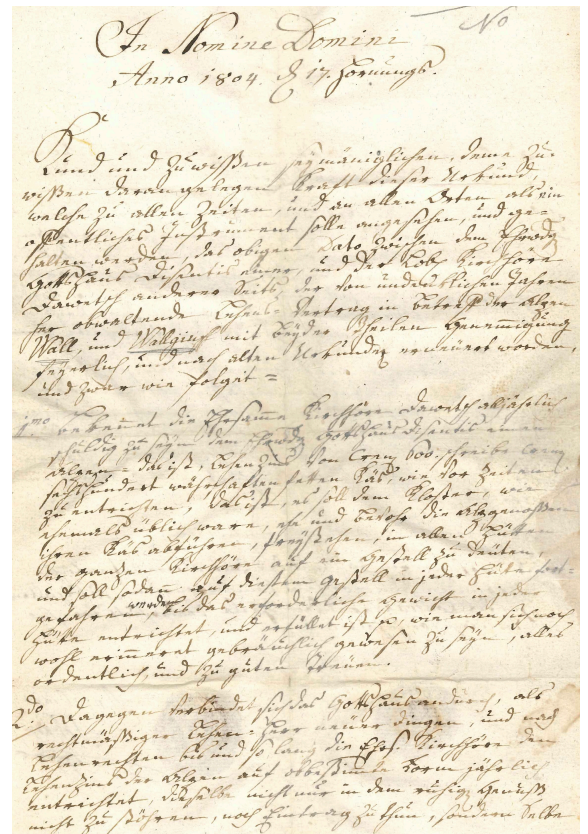 No
In Nomine Domini
Anno 1804. d 17. Hornungs.
Kund und zu wissen seye männiglichen, deme zu
wissen daran gelegen Krafft dieser Urkund,
welche zu allen Zeiten, und an allen Orten als ein
offentliches Instrument solle angesehen, und ge=
halten werden, das obigen Dato zwischen dem
Gottshaus Disentis einer, und der Lob. Kirchhöre
Dawetsch anderer Seits, der von undenklichen Jahren
her obwaltende Lehens-Vertrag in Betreff der Alpen
Wall, und Wallgiuf mit beyder Theilen Genemmigung
feyerlich, und nach alten Urkunden erneuert worden,
und zwar wie folget =
1mo bekennet die Ehrsamme Kirchhöre Dawetsch alljährlich
schuldig zu seyn dem Gottshaus Disentis einen
Alpen- das ist, Lehenzins von Cren 600. schreibe Cren
sechshundert währschaften feten Käs, wie vor Zeiten
zu entrichten, das ist, es soll dem Kloster, wie
ehemals üblich ware, ehe und bevohr die Alpgenossen
ihren Käs abführen, freystehen, in allen Hütten
der ganzen Kirchhöre auf ein Gestell zu deuten,
und soll sodan auf diesem gestell in jeder Hüte fort=
gefahren werden, bis das erforderliche Gewicht in jeder
Hüte entrichtet, und erfüllet ist, wie man sich noch
wohl erinneret gebräuchlich gewesen zu seyn, alles
ordentlich, und zu guten Treuen.
2do Dagegen verbindet sich das Gottshaus andurch, als
rechtmässiger Lehen-Herr neuer dingen, und nach
Lehenrechten bis und so lang die Ehrs. Kirchhöre den
Lehenzins der Alpen auf obbestimte Form jährlich
entrichtet, dieselbe nicht nur in dem ruhigen Genuss
nicht zu stöhren, noch Eintrag zu thun, sondern Selbe